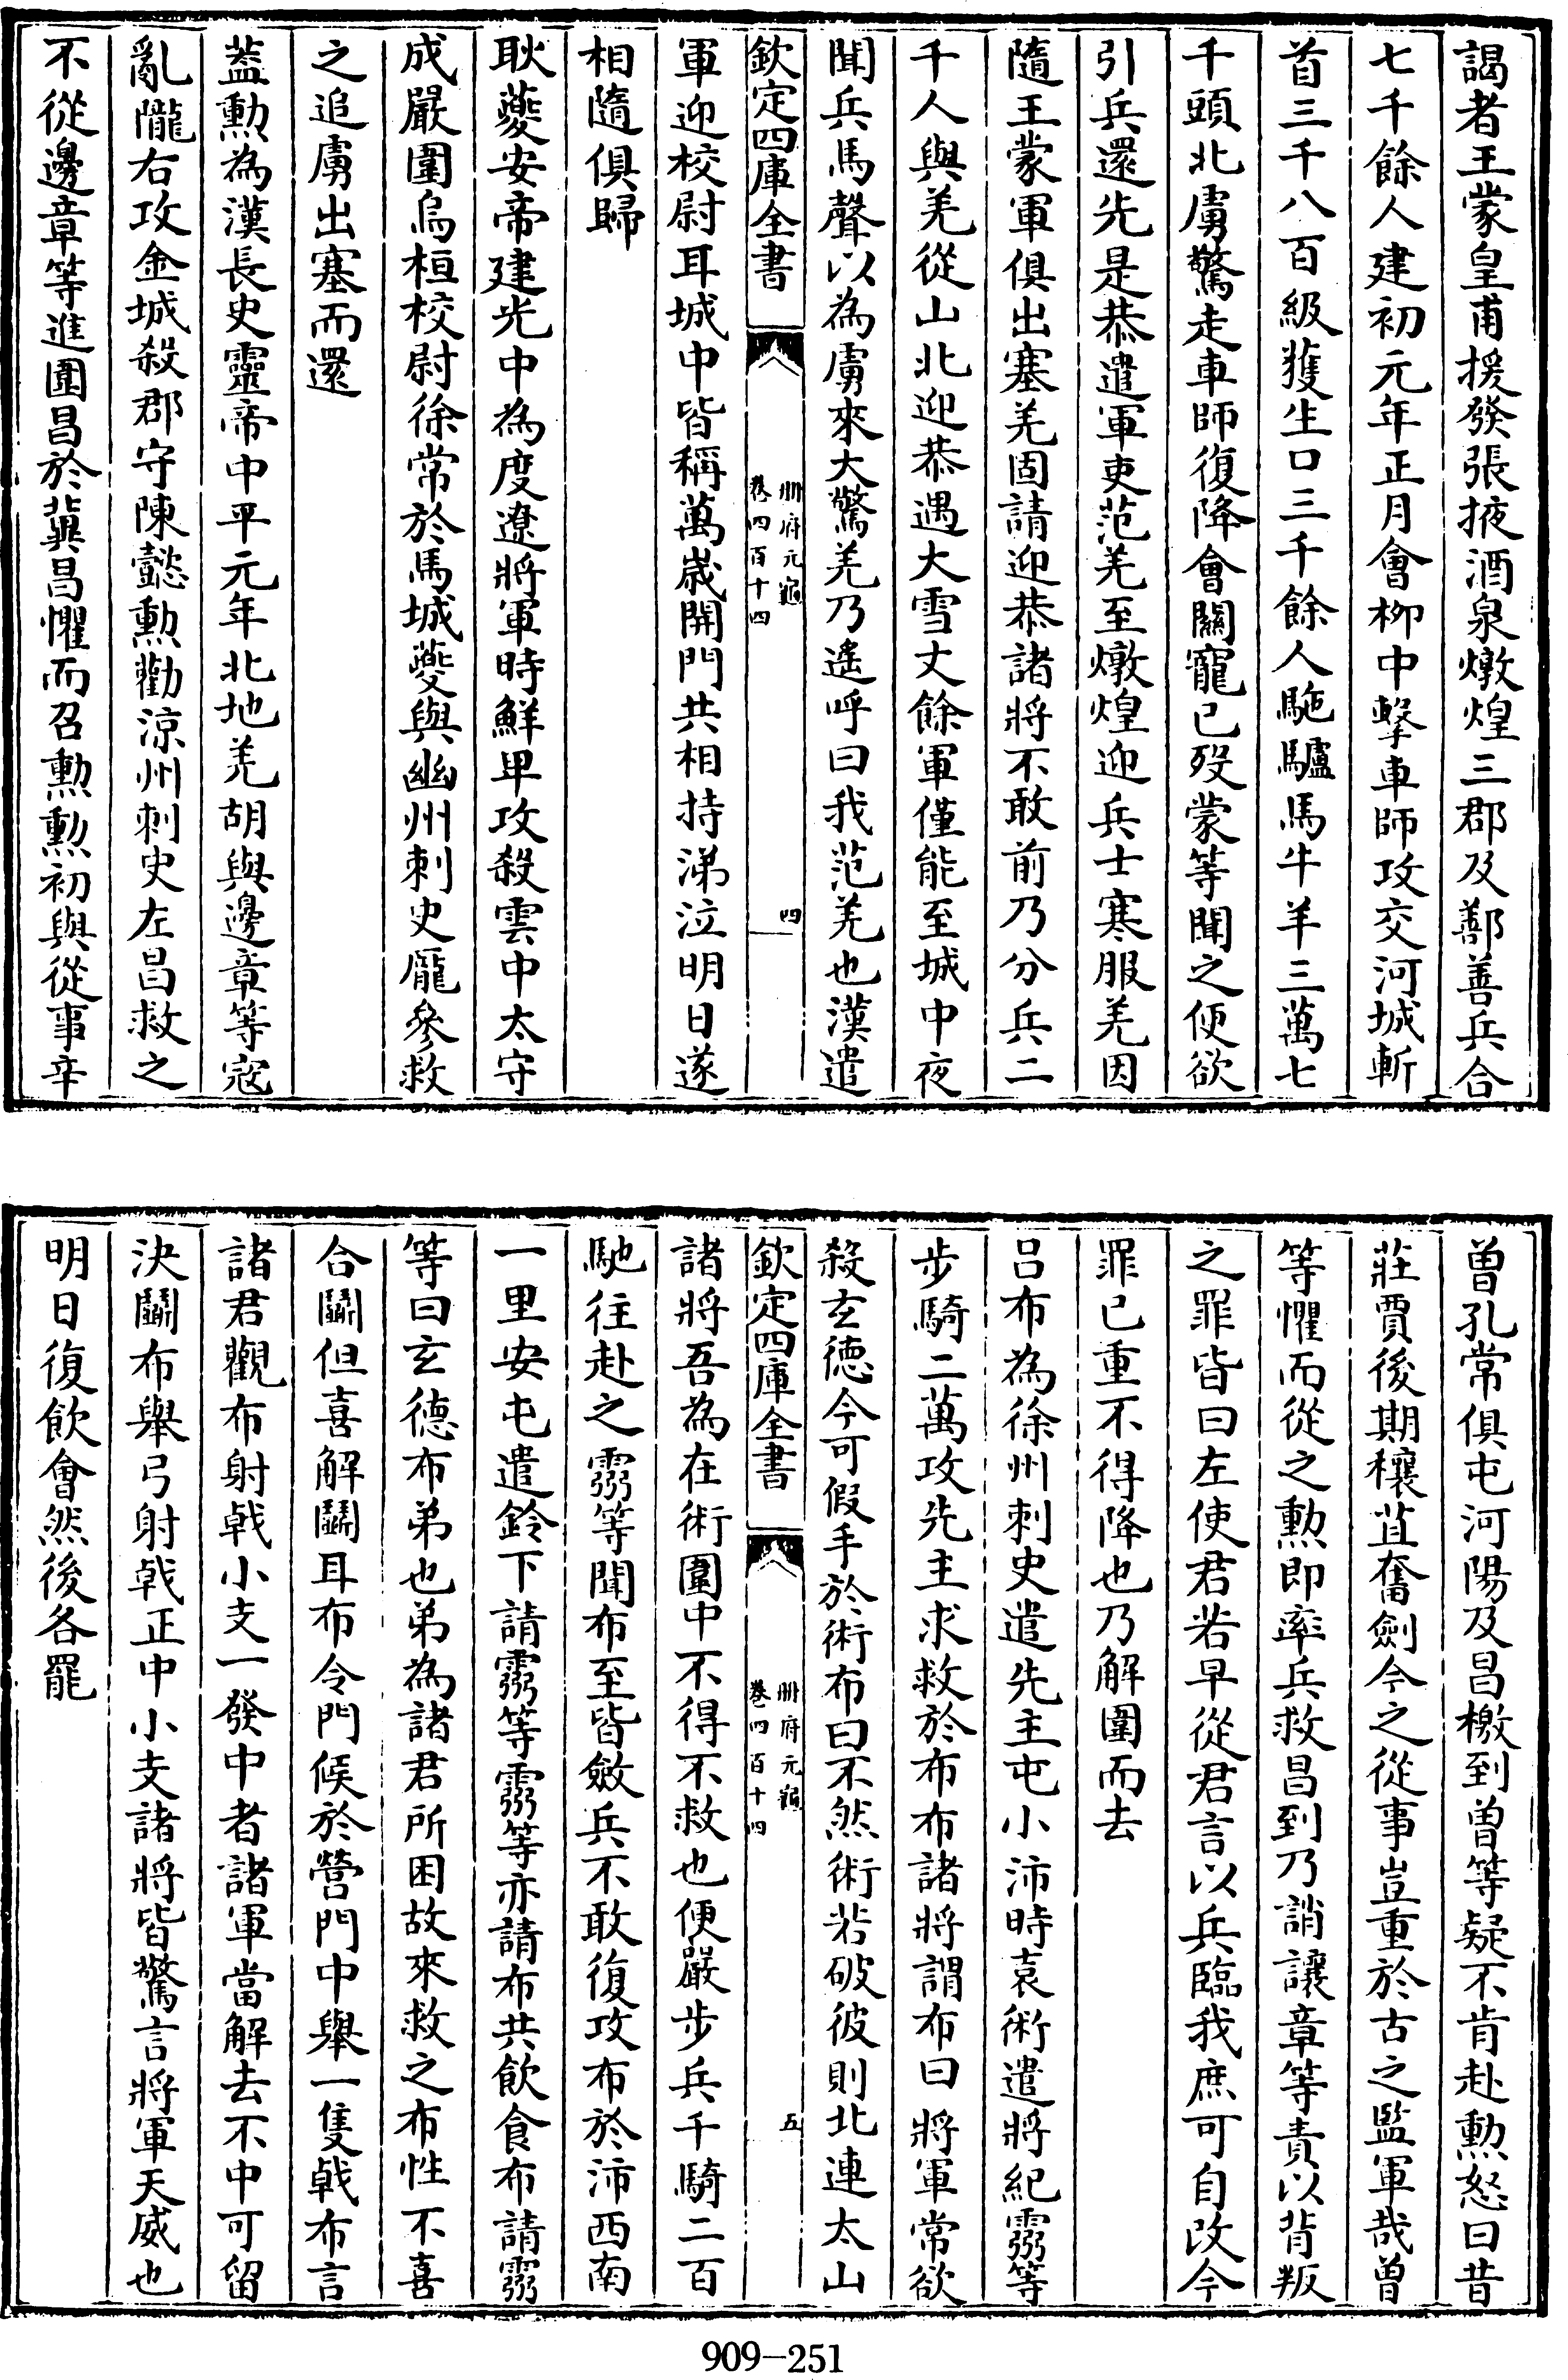 謁者王蒙皇甫援發張掖酒泉燉煌三郡及鄯善兵合
七千餘人建初元年正月會柳中擊車師攻交河城斬
首三千八百級獲生口三千餘人駞驢馬牛羊三萬七
千頭北虜驚走車師復降會關寵已歿蒙等聞之便欲
引兵還先是恭遣軍吏范羌至燉煌迎兵士寒服羌因
隨王蒙軍俱出塞羌固請迎恭諸將不敢前乃分兵二
千人與羌從山北迎恭遇大雪丈餘軍僅能至城中夜
聞兵馬聲以為虜來大驚羌乃遙呼曰我范羌也漢遣
欽定四庫全書
冊府元龜
卷四百十四
四
軍迎校尉耳城中皆稱萬歲開門共相持涕泣明日遂
相隨俱歸
耿夔安帝建光中為度遼將軍時鮮卑攻殺雲中太守
成嚴圍烏桓校尉徐常於馬城夔與幽州刺史龎參救
之追虜出塞而還
蓋勳為漢長史靈帝中平元年北地羌胡與邊章等寇
亂隴右攻金城殺郡守陳懿勳勸涼州刺史左昌救之
不從邊章等進圍昌於冀昌懼而召勳勳初與從事辛
曾孔常俱屯河陽及昌檄到曾等疑不肯赴勳怒曰昔
莊賈後期穰苴奮劍今之從事豈重於古之監軍哉曾
等懼而從之勳即率兵救昌到乃誚讓章等責以背叛
之罪皆曰左使君若早從君言以兵臨我庶可自改今
罪已重不得降也乃解圍而去
呂布為徐州刺史遣先主屯小沛時袁術遣將紀靈等
步騎二萬攻先主求救於布布諸將謂布曰將軍常欲
殺玄德今可假手於術布曰不然術若破彼則北連太山
欽定四庫全書
冊府元龜
卷四百十四
五
諸將吾為在術圍中不得不救也便嚴步兵千騎二百
馳往赴之靈等聞布至皆斂兵不敢復攻布於沛西南
一里安屯遣鈴下請靈等靈等亦請布共飲食布請靈
等曰玄德布弟也弟為諸君所困故來救之布性不喜
合鬭但喜解鬭耳布令門候於營門中舉一隻戟布言
諸君觀布射戟小支一發中者諸軍當解去不中可留
決鬭布舉弓射戟正中小支諸將皆驚言將軍天威也
明日復飲會然後各罷
909-251